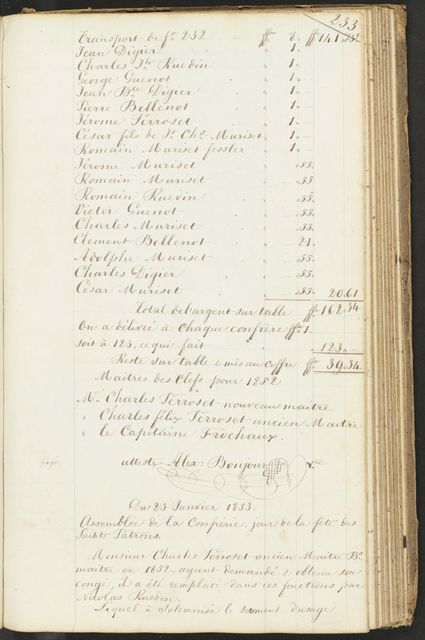 233
Transport de fo 232 ffs 2. ffs 141.
Jean Digier 1.
Charles Jh Ruedin 1.
George Guenot 1.
Jean Bte Digier 1.
Pierre Billenot 1.
Jérome Perroset 1.
César fils de Jn Chs Muriset 1.
Romain Muriset fessler 1.
Jérome Muriset „55.
Romain Muriset „55.
Romain Ruedin „55.
Victor Guenot „55.
Charles Muriset „55.
Clement Billenot 21.
Adolphe Muriset „55.
Charles Digier „55.
César Muriset „55. 20.61
Total de l'argent sur table ffs 162.34
On a délivré à Chaque confrère ffs 1.
soit à 123, ce qui fait 123.
Reste sur table & mis au Coffre ffs 39.34.
Maitres des Clefs pour 1852
Mr Charles Perroset nouveau maitre
" Charles félix Perroset ancien Maitre
" le Capitaine Frochaux.
atteste Alex: Bonjour Nre
Du 23 Janvier 1853.
Assemblée de la Confrérie, jour de la fête des
Saints Patrons.
Monsieur Charles Perroset ancien Maitre
maitre en 1852. ayant demandé & obtenu son
congé, il a été remplacé dans ces fonctions par
Nicolas Ruedin.
Lequel à solemnisé le serment d'usage